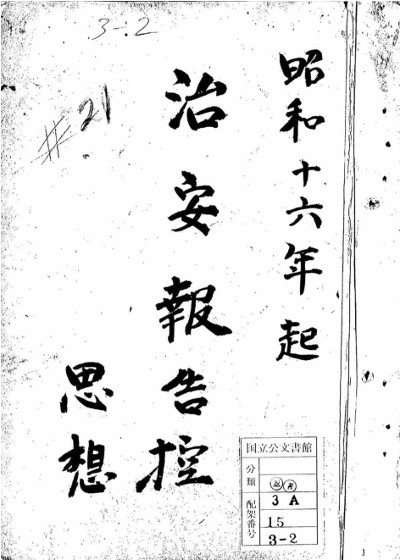 3-2
#21
昭和十六年起
治安報告控
思想
国立公文書館
分類
配架番号
3A
15
3-2